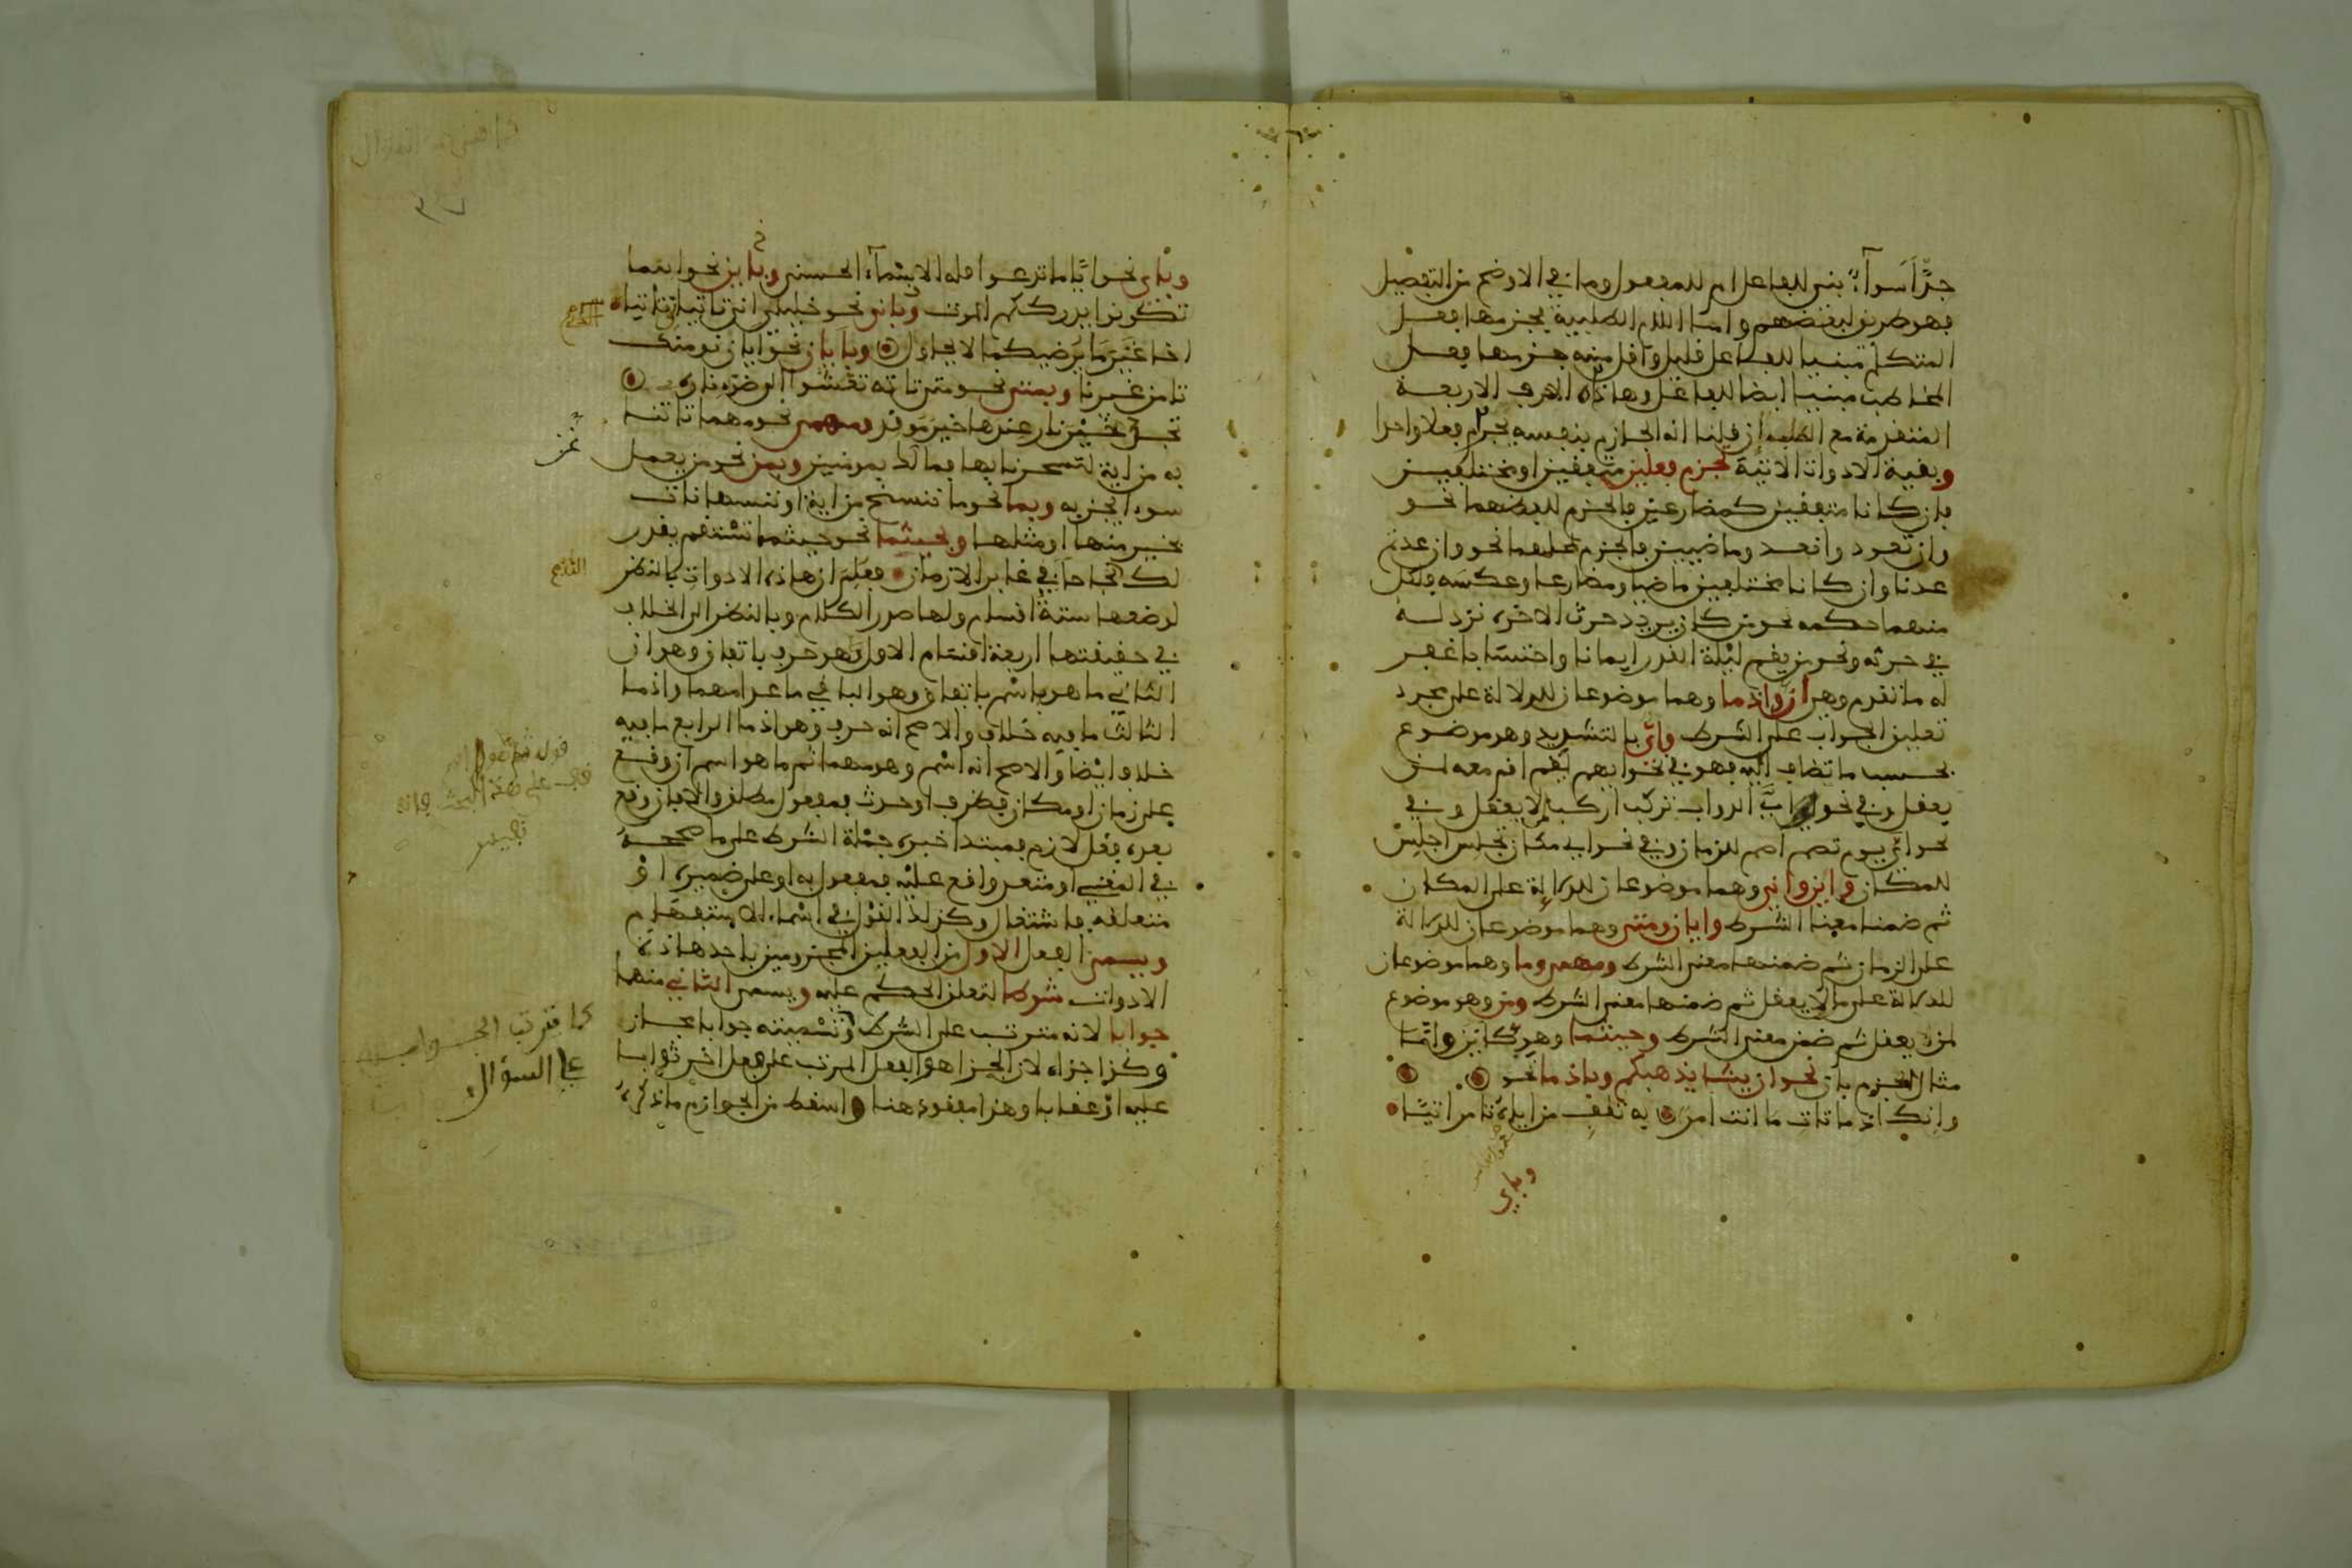 جدًّا سَوآءٌ بني للفاعل ام للمفعول وما في الاوضح من التفصيل
فهو طريق لبعضهم واما اللام الطلبية بجزمها فعل
المتكلم مبنيا للفاعل قليل واقل منه جزمها فعل
المخاطب مبنيا ايضا للفاعل وهاذه الاحرف الاربعة
المتقدمة مع الطلب ان قلنا انه الجازم بنفسه تجزم فعلا واحدا
وبقية الادوات الاتية تجزم فعلين متفقين او مختلفين
فان كانا متفقين كمضارعين فالجزم للفظهما نحو
وان تعودوا نعد وماضيين فالجزم لمحلهما نحو وان عدتم
عدنا وان كانا مختلفين ماضيا ومضارعا وعكسه فلكل
منهما حكمه نحو من كان يريد حرث الاخرة نزد له
في حرثه ونحو من يقم ليلة القدر ايمانا واحتسابا غفر
له ما تقدم وهي ان واذما وهما موضوعان للدلالة على مجرد
تعليق الجواب على الشرط وايّ بالتشديد وهو موضوع
بحسب ما تضاف اليه فهو في نحو ايهم يقم اقم معه لمن
يعقل وفي نحو ايَّ الدواب تركب اركب لما لا يعقل وفي
نحو ايّ يوم تصم اصم للزمان وفي نحو اي مكان تجلس اجلس
للمكان واين وانى وهما موضوعان للدلالة على المكان
ثم ضمنا معنى الشرط وايان ومتى وهما موضوعان للدلالة
على الزمان ثم ضمنهما معنى الشرط ومهمى وما وهما موضوعان
للدلالة على ما لا يعقل ثم ضمنها معنى الشرط ومن وهو موضوع
لمن يعقل ثم ضمن معنى الشرط وحيثما وهي كاين وانّى
مثال الجزم بان نحو ان يشا يذهبكم وباذما نحو
وانك اذ ما تات ما انت امر به تلف من اياه تامر اتيًا
وباي
وباي نحو ايًّا ما تدعوا فله الاسمآء الحسنى وباين نحو اينما
تكونوا يدرككم الموت وبانى نحو خليلي انى تاتياني تاتيا
اخا غَيرَ ما يَرضيكما لا يحاول وبايان نحو ايان نومنك
تامن غيرنا وبمتى نحو متى تاته تعشوا الى ضوء ناره
تجد خَيْرَ نار عندها خير موقد وبمهمى نحو مهما تاتنا
به من اية لتسحرنا بها فما نحن لك بمومنين وبمن نحو من يعمل
سوءا يجز به وبما نحو ما ننسخ من اية او ننسها نات
بخير منها او مثلها وبحيثما نحو حيثما تستقم يقدر
لك الله نجاحا في غابر الازمان فعلم ان هاذه الادوات بالنظر
لوضعها ستة اقسام ولها صدر الكلام وبالنظر الى الخلاف
في حقيقتها اربعة اقسام الاول هو حرف باتفاق وهو ان
الثاني ما هو اسم باتفاق وهو الباقي ما عدا مهما واذما
الثالث ما فيه خلاف والاصح انه حرف وهو اذما الرابع ما فيه
خلاف ايضا والاصح انه اسم وهو مهما ثم ما هو اسم ان وقع
على زمان او مكان فظرف او حدث فمفعول مطلق والا فان وقع
بعده فعل لازم فمبتدا خبره جملة الشرط على ما صححه
في المغني او متعد واقع عليه فمفعول به او على ضميره او
متعلقه فاشتغال وكذلك القول في اسماء الاستفهام
ويسمى الفعل الاول من الفعلين المجزومين باحد هاذه
الادوات شرطا لتعلق الحكم عليه ويسمى الثاني منهما
جوابا لانه مترتب على الشرط وتسميته جوابا مجاز
وكذا جزاء لان الجزا هو الفعل المرتب على فعل اخر ثوابا
عليه او عقابا وهذا مفقود هنا واسقط من الجوازم ما ذكره
كما ترتب الجواب
على السؤال